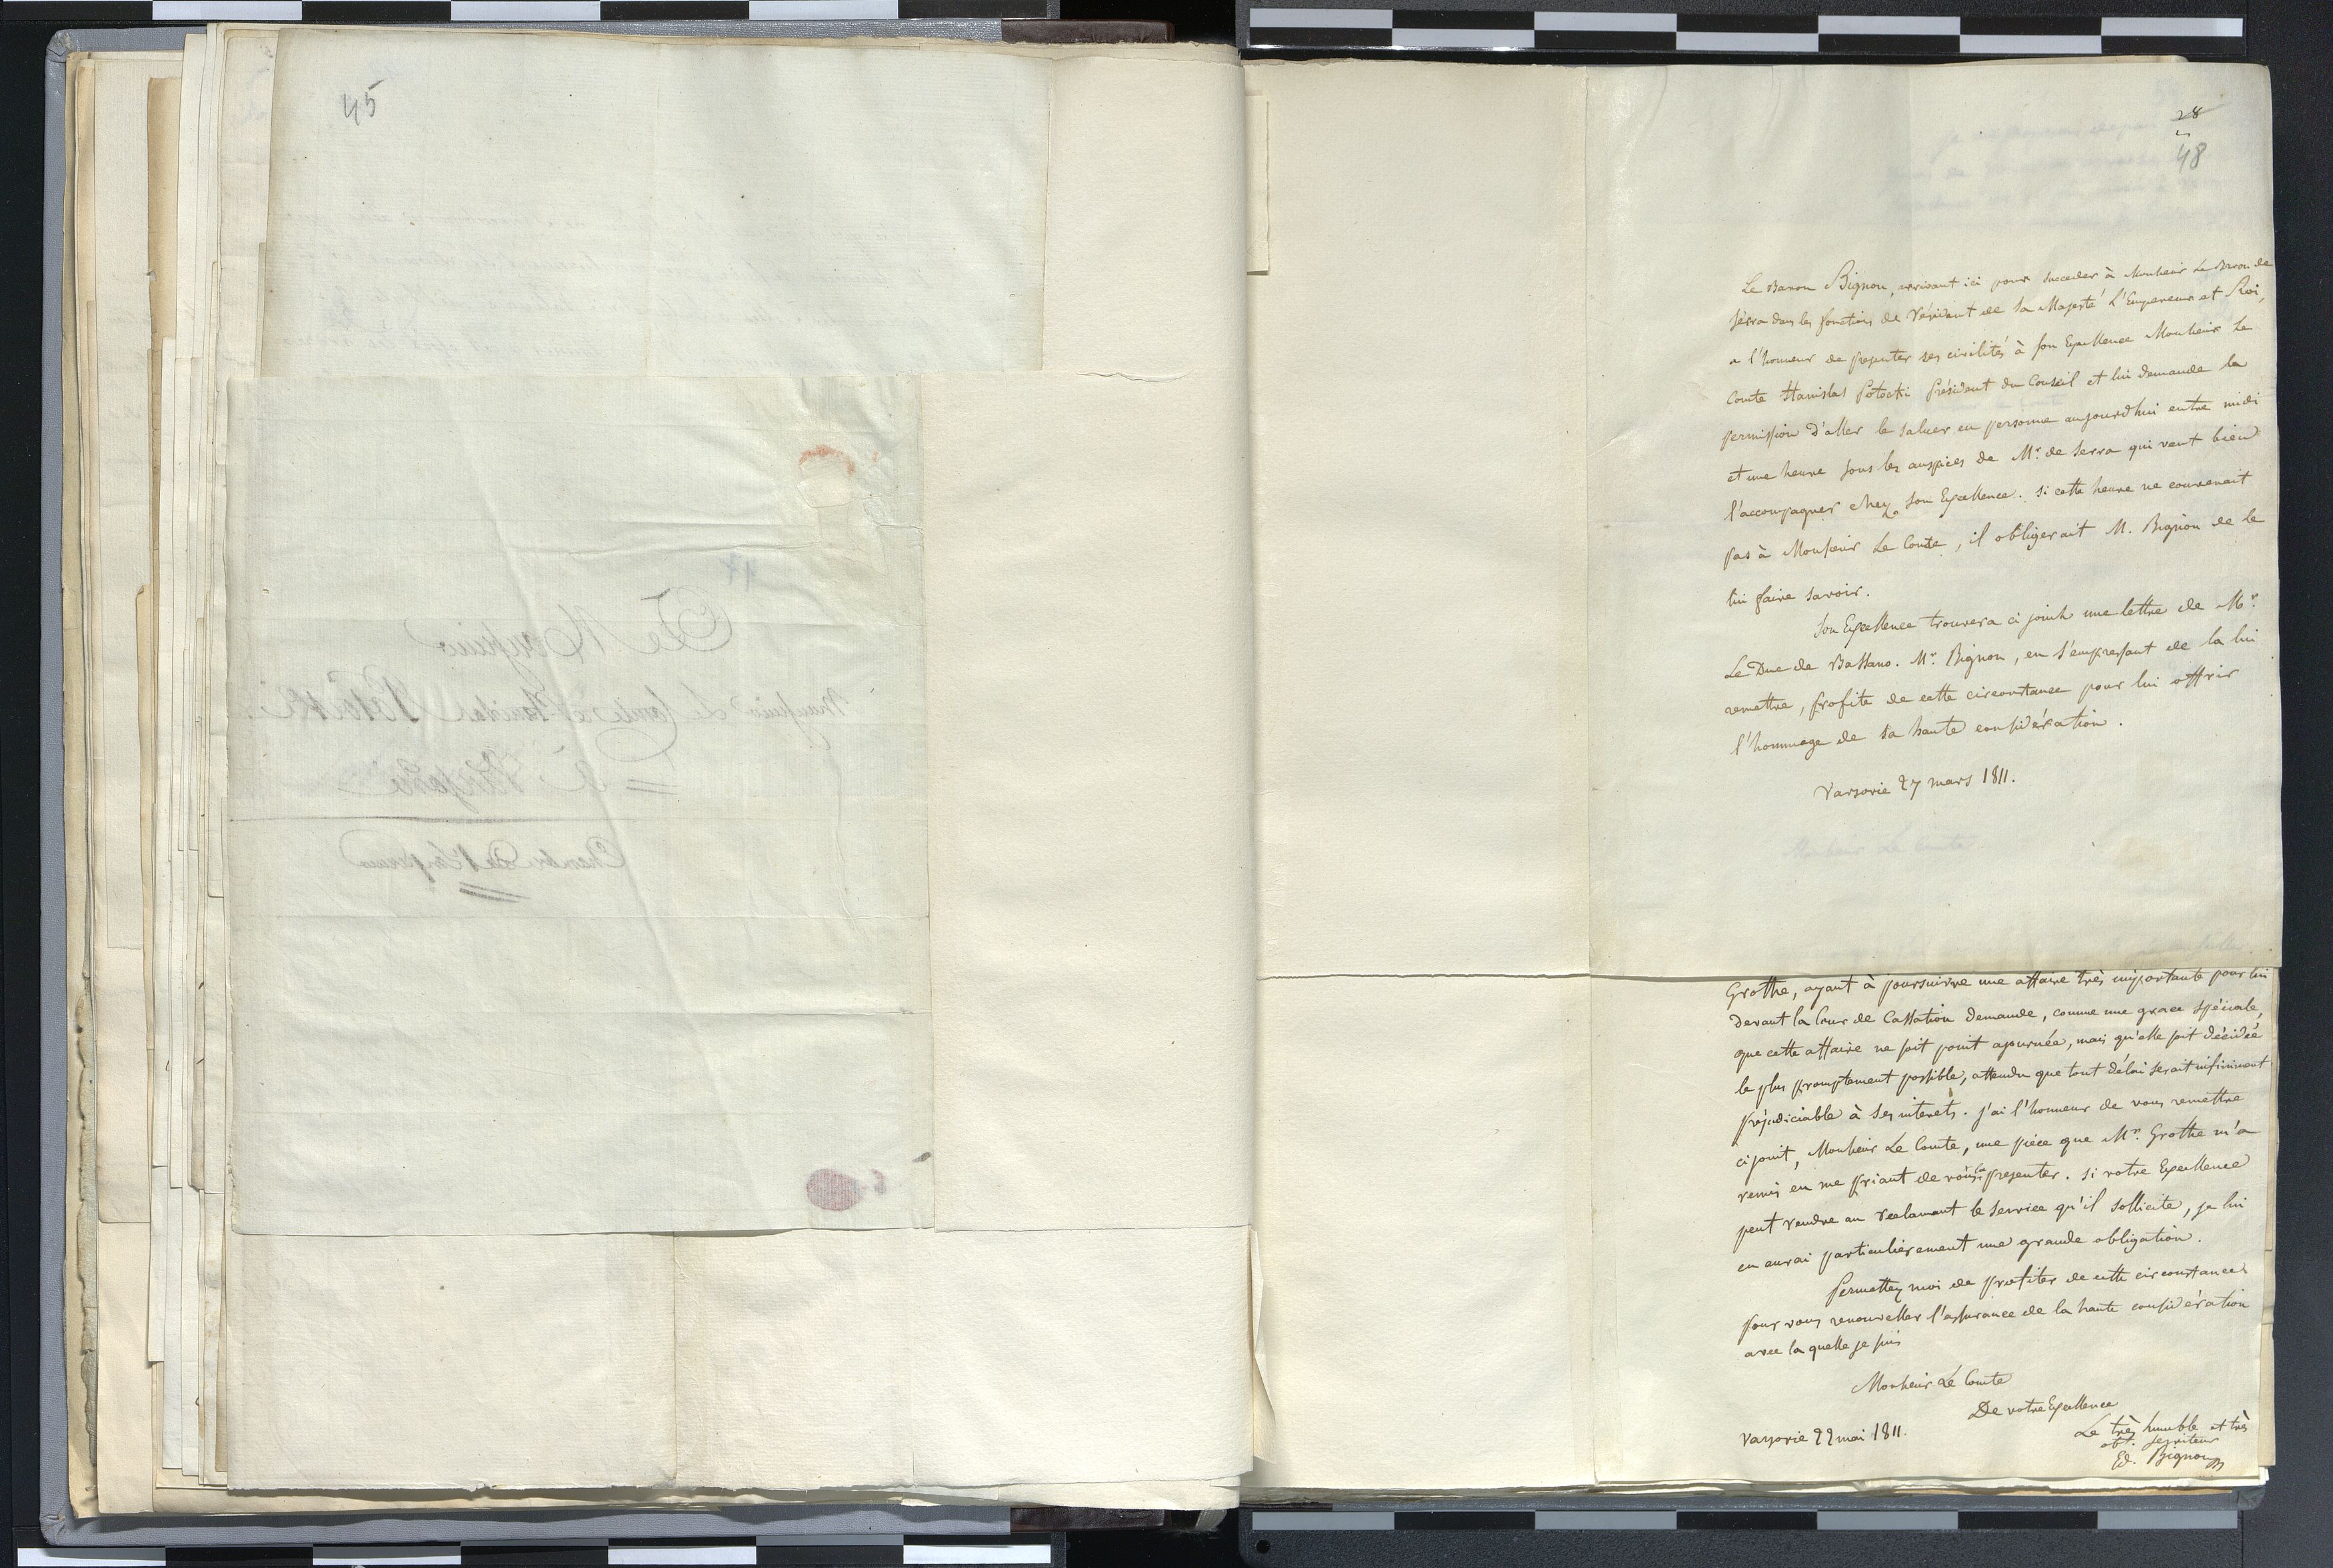 45
28
48
Le Baron Bignon, arrivant ici pour succeder à Monsieur Le Baron de
Serra dans les fonctions de résident de Sa Majesté L'Empereur et Roi,
a l'honneur de presenter ses civilités à son Excellence Monsieur Le
Comte Stanislas Potocki Président du Conseil et lui demande la
permission d'aller le saluer en personne aujourd'hui entre midi
et une heure sous les auspices de Mr. de Serra qui veut bien
l'accompagner chez Son Excellence. Si cette heure ne convenait
pas à Monsieur Le Comte, il obligerait M. Bignon de le
lui faire savoir.
Son Excellence trouvera ci joint une lettre de Mr.
Le Duc de Bassano. Mr. Bignon, en s'empressant de la lui
remettre, profite de cette circonstance pour lui offrir
l'hommage de sa haute considération.
Varsovie 27 mars 1811.
Monsieur Le Comte
Grothe, ayant à poursuivre une affaire très importante pour lui
devant la Cour de Cassation demande, comme une grace spéciale,
que cette affaire ne soit point ajournée, mais qu'elle soit décidée
le plus promptement possible, attendu que tout délai serait infiniment
préjudiciable à ses interets. j'ai l'honneur de vous remettre
ci joint, Monsieur Le Comte, une pièce que Mr. Grothe m'a
remis en me priant de vous la presenter. Si votre Excellence
peut rendre au reclamant le service qu'il sollicite, je lui
en aurai particulierement une grande obligation.
Permettez moi de profiter de cette circonstance
pour vous renouveller l'assurance de la haute considération
avec la quelle je suis
Monsieur Le Comte
De votre Excellence
Varsovie 22 mai 1811.
Le très humble et très
obt. serviteur
Ed. Bignon